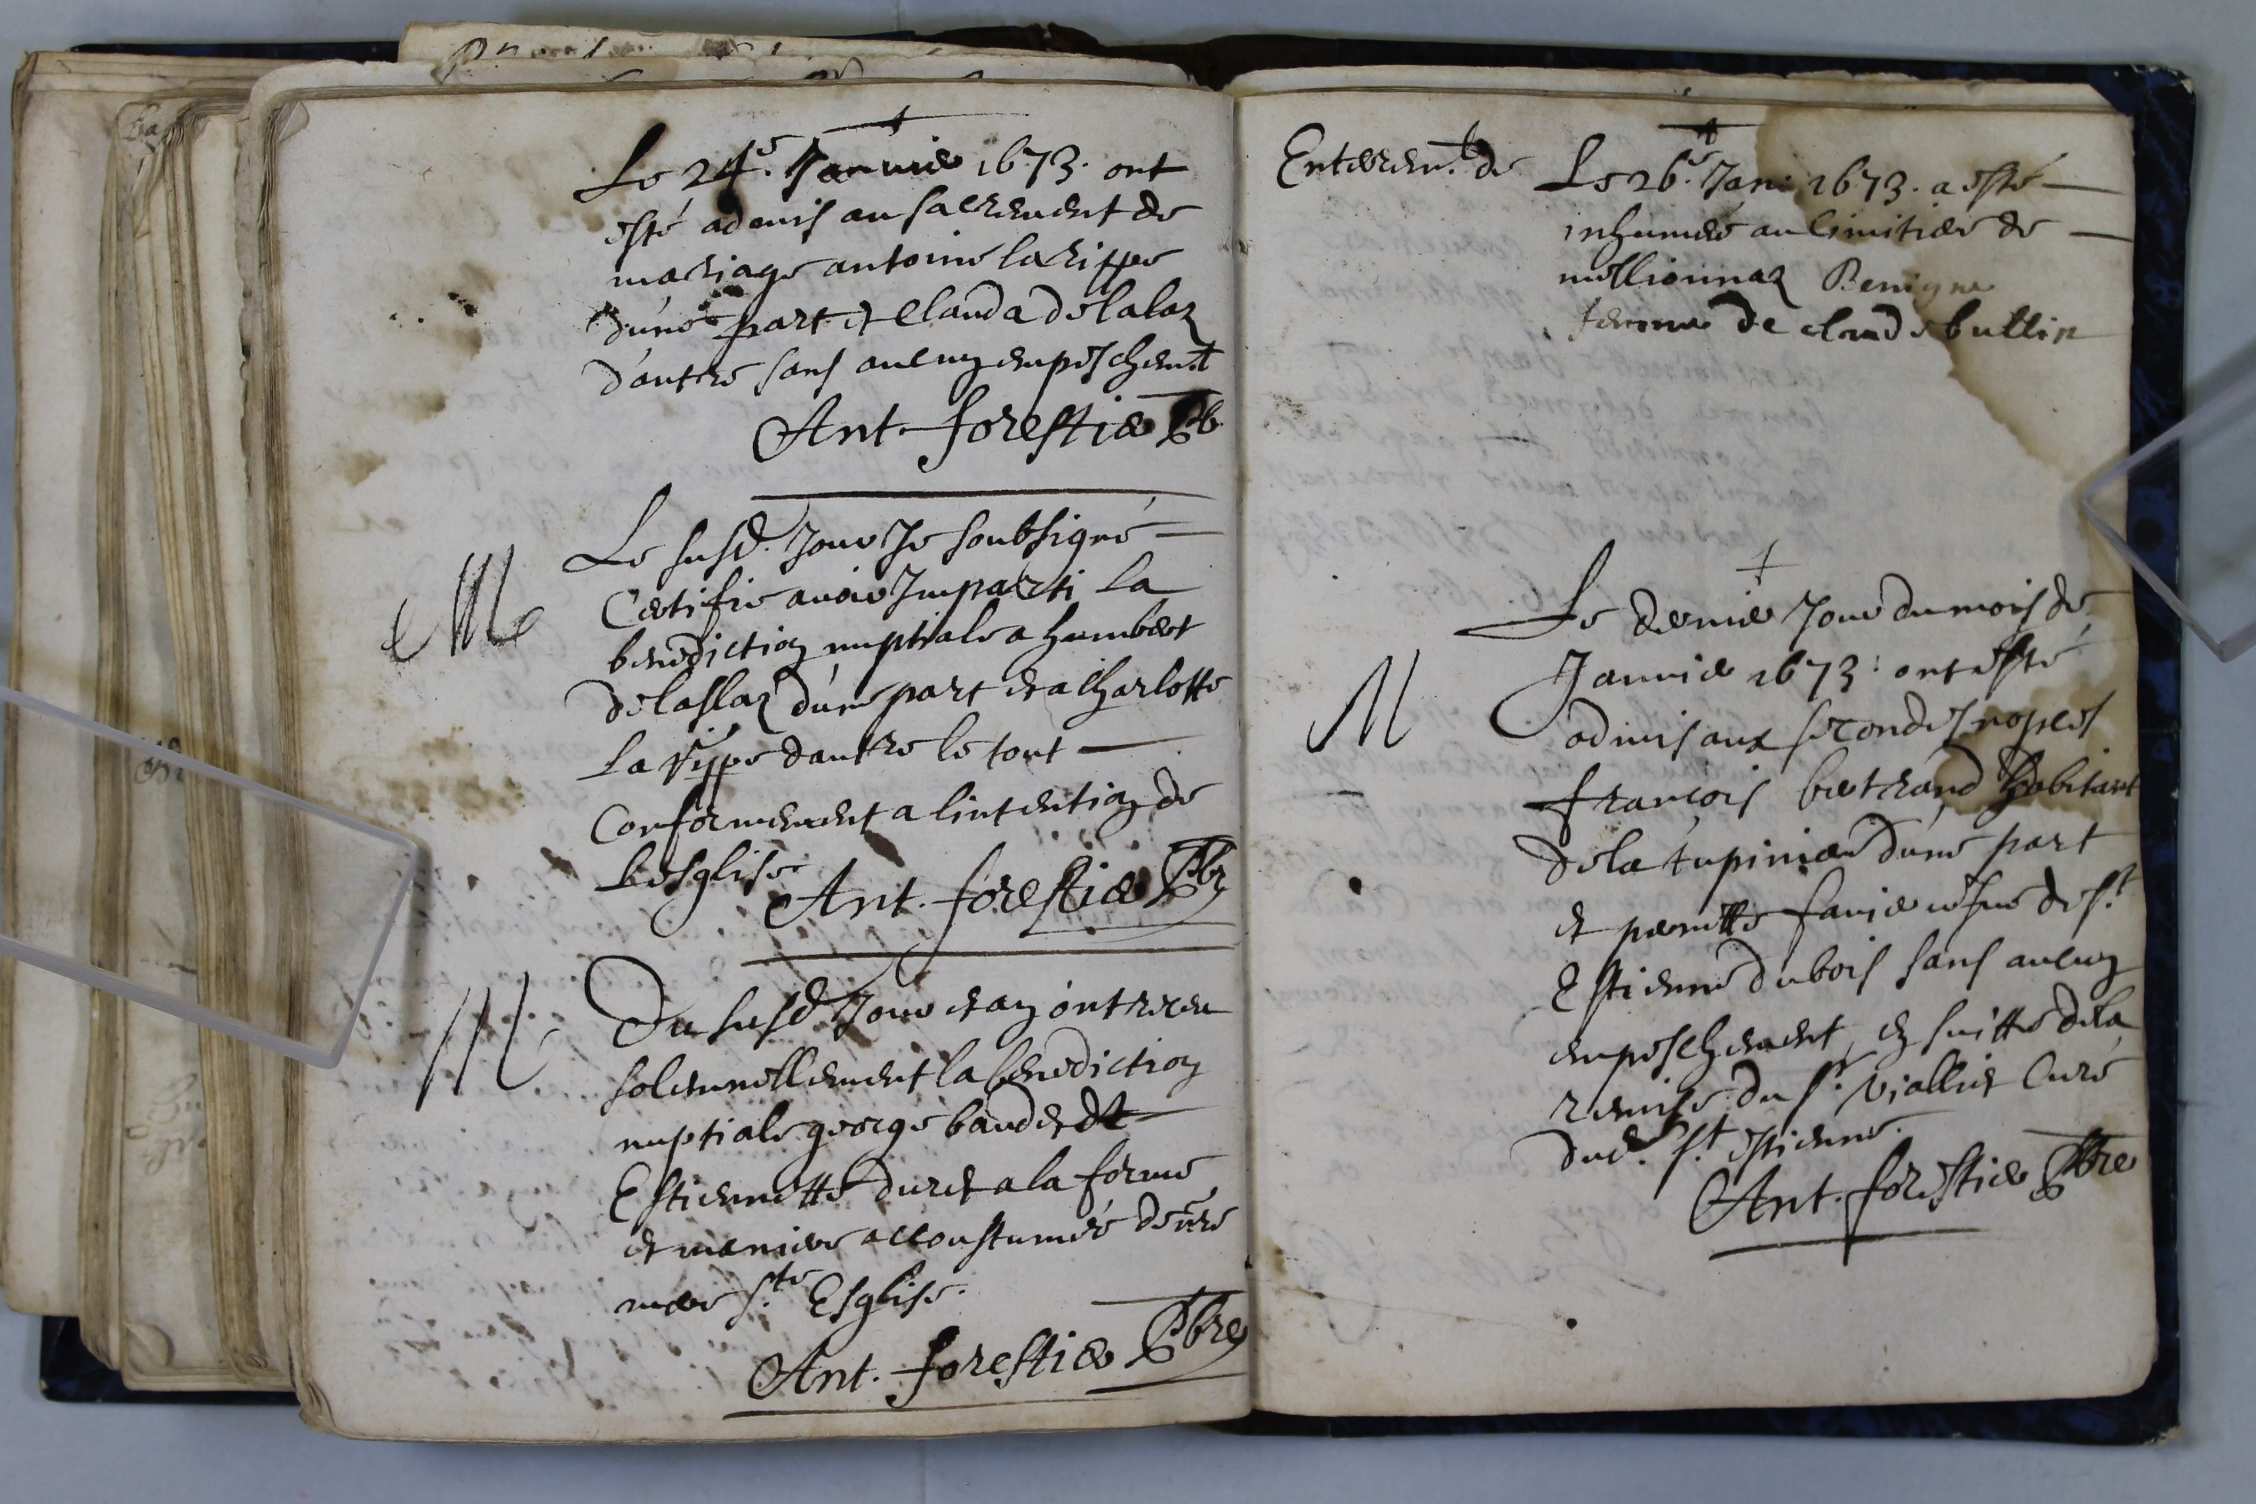 Le 24.e Januier 1673. ont
esté admis au sacrement de
mariage antoine la rippe
d'une part et Clauda delalaz
d'autre sans aulcung empeschem.t
Ant. forestier Pb
Le susd. Jour Je soubsigné
Certifie auoir Imparti la
benediction nuptiale a humbert
delaslaz d'une part et a Charlotte
la rippe d'autre le tout
Conformement a lintention de
Lesglise
Ant. forestier Pbr
M
Du susd. Jour et an ont receu
solemnellement la benediction
nuptiale george baudet et
Estiennette duret a la forme
et maniere accoustumée de nre
mere s.te Esglise.
Ant. forestier Pbre
M
Enterem.t de
Le 26.e Jan: 1673. a esté
inhumée au Cimitiere de
mellionnaz Benigne
femme de claude bullin
Le dernier Jour du mois de
Januier 1673: ont esté
admis aux secondes nopces
françois bertrand habitant
de la tupiniere d'une part
et pernette fauier vefue de s.t
Estienne dubois sans aulcung
empeschement, en suitte de la
remise du s.r viallier Curé
dud. s.t estienne.
M
Ant. forestier Pbre